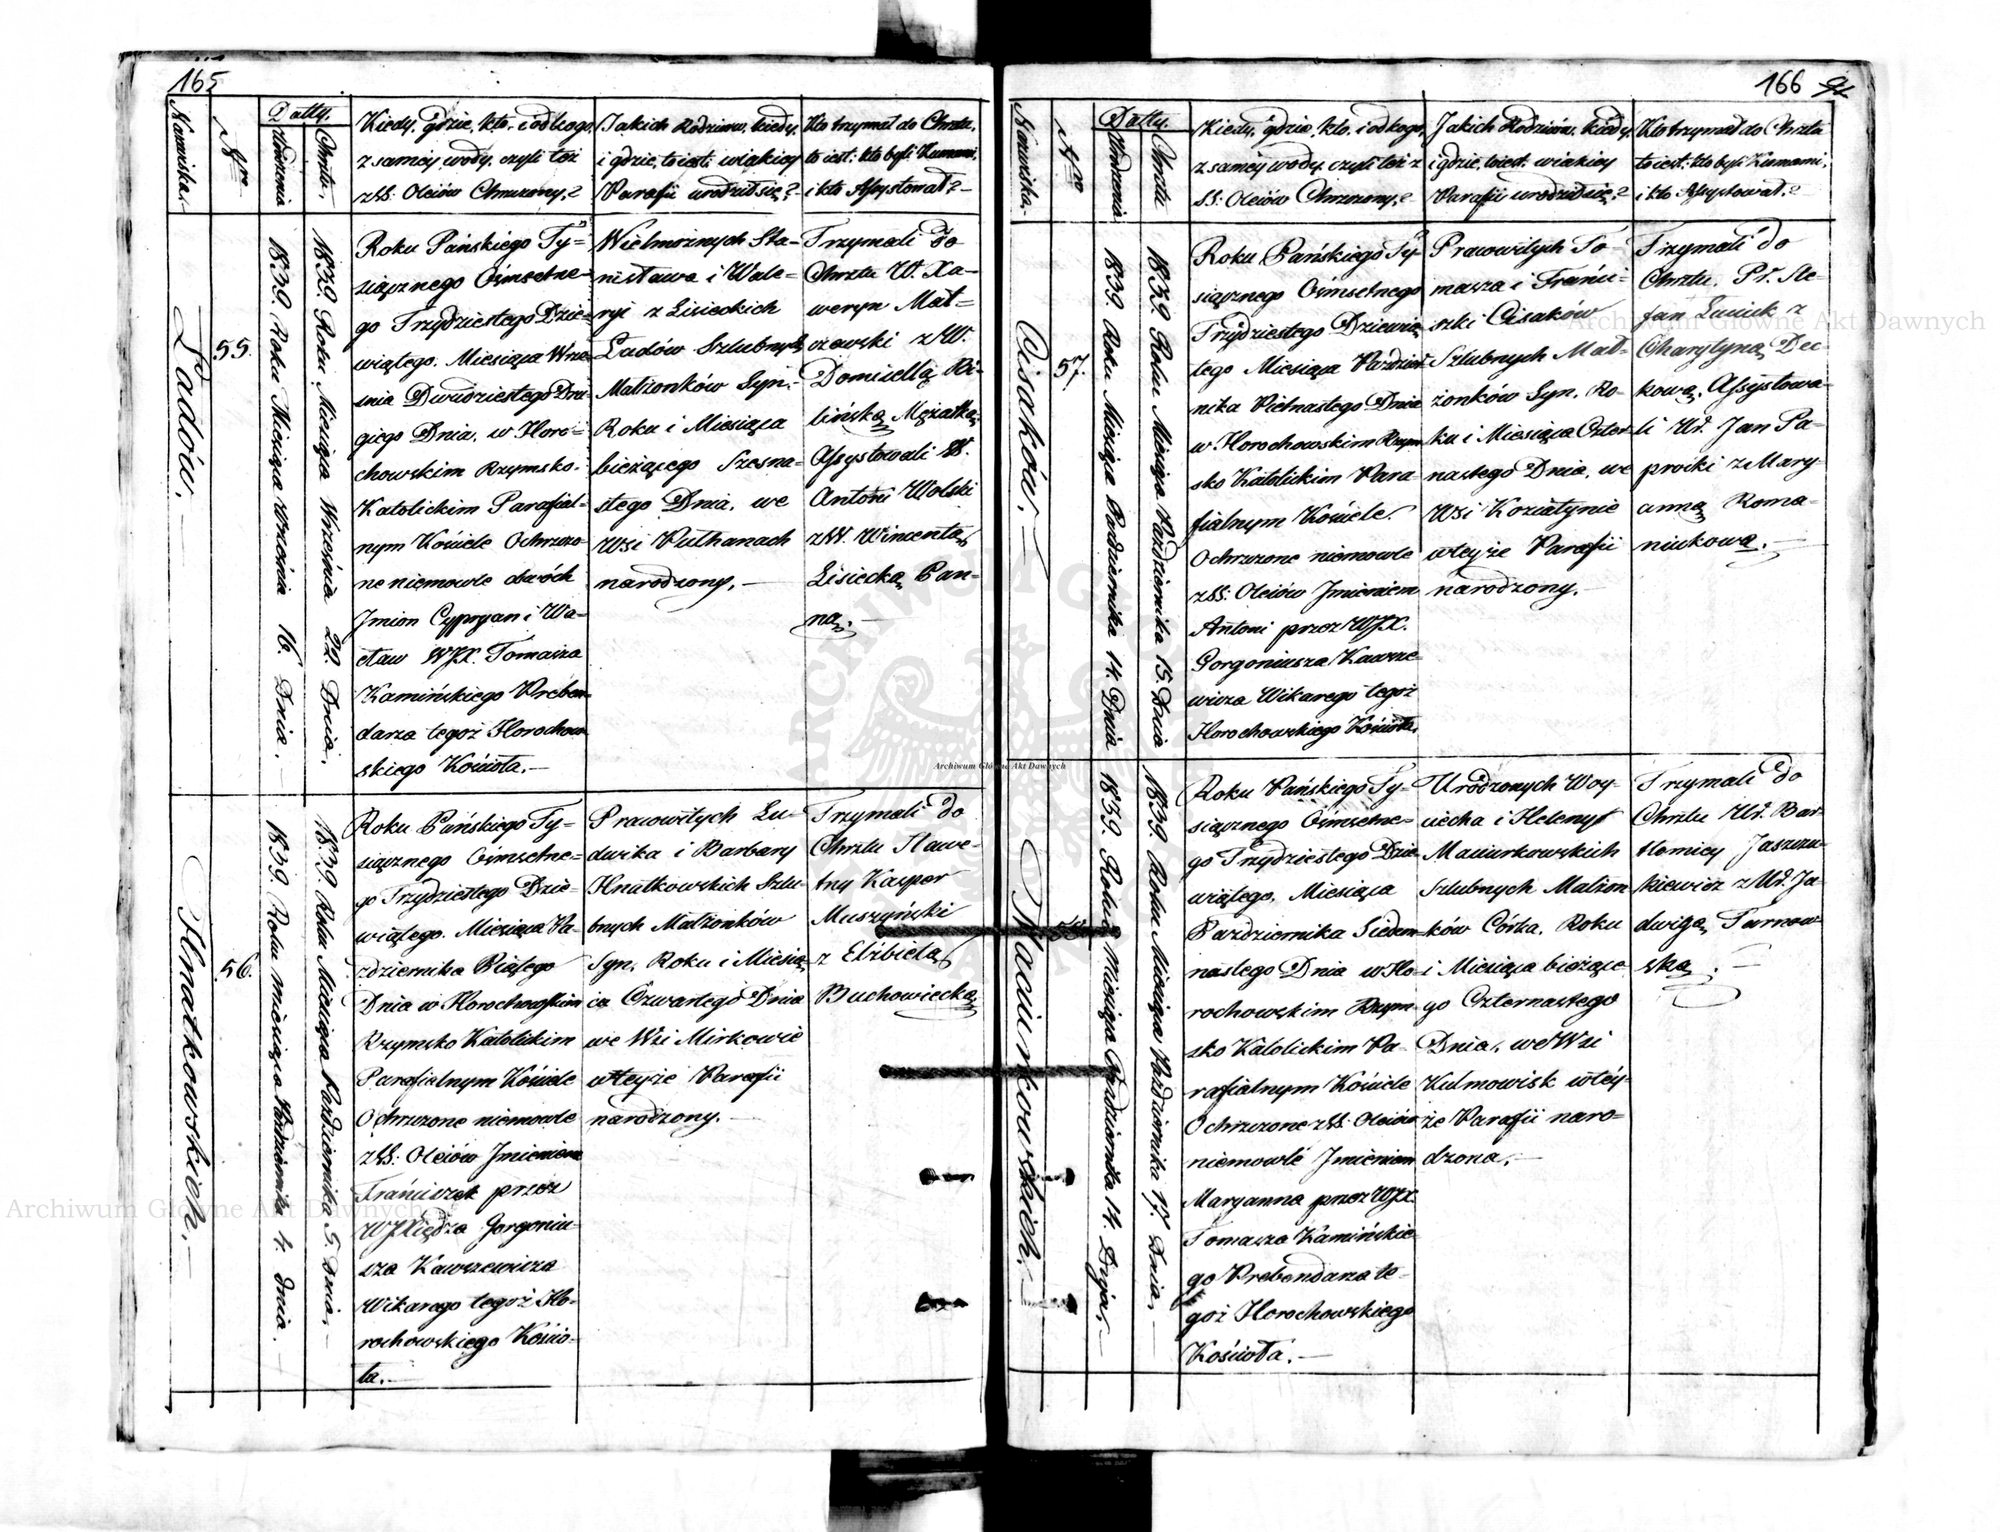 165
Nazwiska.
Nro
Datty.
Urodzenia
Chrztu.
Kiedy, gdzie, kto, i od kogo,
z samey wody, czyli też
z SS. Oleiów Chrzczony,?
Jakich Rodziców, kiedy,
i gdzie, to iest: w iakiey
Parafii urodził się,?
Kto trzymał do Chrztu,
to iest: kto byli Kumami,
i kto Assystował,?
Ładów.
55.
1839. Roku Miesiąca Września 16. Dnia.
1839. Roku Miesiąca Września 22. Dnia.
Roku Pańskiego Ty=
siącznego Ośmsetne=
go Trzydziestego Dzie=
wiątego. Miesiąca Wrze
śnia Dwudziestego Dru
giego Dnia, w Horo=
chowskim Rzymsko.
Katolickim Parafial=
nym Kościele Ochrzczo=
ne niemowle dwóch
Jmion Cypryan i Wa=
cław WJX. Tomasza
Kamińskiego Preben=
darza tegoż Horochow
skiego Kościoła.—
Wielmożnych Sta=
nisława i Wale=
ryi z Lisieckich
Ładów Szlubnych
Małżonków Syn.
Roku i Miesiąca
bieżącego Szesna=
stego Dnia, we
Wsi Pulhanach
narodzony.—
Trzymali do
Chrztu W. Xa=
weryn Mał=
czewski z W.
Domicellą Bi=
lińską Mężatką
Assystowali W.
Antoni Wolski
z W. Wincentą
Lisiecką Pan=
ną.—
Hnatkowskich.—
56.
1839. Roku miesiąca Października 4. dnia.
1839. Roku Miesiąca Października 5. Dnia.
Roku Pańskiego Ty=
siącznego Ośmsetne=
go Trzydziestego Dzie=
wiątego. Miesiąca Pa=
ździernika Piątego
Dnia w Horochowskim
Rzymsko Katolickim
Parafialnym Kościele
Ochrzczone niemowle
z SS. Oleiów Jmieniem
Franciszek przez
WJXiędza Gorgoniu=
sza Kawszewicza
Wikarego tegoż Ho=
rochowskiego Kościo=
ła.—
Prawowitych Lu=
dwika i Barbary
Hnatkowskich Szlu=
bnych Małżonków
Syn, Roku i Miesią=
ca Czwartego Dnia
we Wsi Mirkowie
w teyże Parafii
narodzony.—
Trzymali do
Chrztu Sławe=
tny Kasper
Muszyński
z Elżbietą
Buchowiecką
166
Nazwiska.
Nro
Datty.
Urodzenia
Chrztu
Kiedy, gdzie, kto, i od kogo,
z samey wody, czyli też z
SS. Oleiów Chrzczony,?
Jakich Rodziców, kiedy,
i gdzie, to iest: w iakiey
Parafii urodził się,?
Kto trzymał do Chrztu
to iest: kto byli Kumami,
i kto Assystował.?
Cisaków.—
57.
1839. Roku Miesiąca Października 14. Dnia
1839. Roku Miesiąca Października 15. Dnia
Roku Pańskiego Ty=
siącznego Ośmsetnego
Trzydziestego Dziewią
tego Miesiąca Paździer
nika Pietnastego Dnia
w Horochowskim Rzym
sko Katolickim Para=
fialnym Kościele.
Ochrzczone niemowle
z SS: Oleiów Jmieniem
Antoni przez WJX.
Gorgoniusza Kawsze=
wicza Wikarego tegoż
Horochowskiego Kościoła.
Prawowitych To=
masza i Franci=
szki Cisaków
Szlubnych Mał=
żonków Syn, Ro=
ku i Miesiąca Czter
nastego Dnia, we
Wsi Koziatynie
w teyże Parafii
narodzony.—
Trzymali do
Chrztu, Pr. Ste=
fan Luciuk z
Charytyną Dec=
kową. Assystowa=
li Ur. Jan Pa=
procki z Mary=
anną Roma=
niukową.—
Maciurkowskich.—
58.
1839. Roku Miesiąca Października 14. Dnia.
1839. Roku Miesiąca Października 17. Dnia.
Roku Pańskiego Ty=
siącznego Ośmsetne=
go Trzydziestego Dzie
wiątego, Miesiąca
Października Siedem
nastego Dnia w Ho=
rochowskim Rzym=
sko Katolickim Pa=
rafialnym Kościele
Ochrzczone z SS. Oleiów
niemowlé Jmieniem
Maryanna przez WJX.
Tomasza Kamińskie=
go Prebendarza te=
goż Horochowskiego
Kościoła.—
Urodzonych Woy=
ciecha i Heleny
Maciurkowskich
Szlubnych Małżon
ków Córka, Roku
i Miesiąca bieżące=
go Czternastego
Dnia, we Wsi
Kulmowisk w téy=
że Parafii naro=
dzona.—
Trzymali do
Chrztu Ur. Bar=
tłomiey Jaszczu=
kiewicz z Ur. Ja=
dwigą Tarnow
ską.—
Archiwum Główne Akt Dawnych
Archiwum Główne Akt Dawnych
Archiwum Główne Akt Dawnych